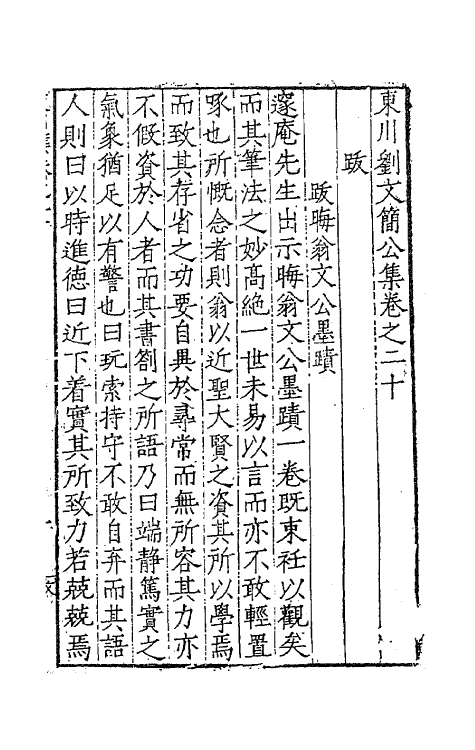 東川劉文簡公集卷之二十
跋
跋晦翁文公墨蹟
邃庵先生出示晦翁文公墨蹟一卷既束衽以觀矣
而其筆法之妙高絶一世未易以言而亦不敢輕置
啄也所慨念者則翁以近聖大賢之資其所以學焉
而致其存省之功要自異於尋常而無所容其力亦
不假資於人者而其書劄之所語乃曰端静篤實之
氣象猶足以有警也曰玩索持守不敢自弃而其語
人則曰以時進德曰近下着實其所致力若兢兢焉